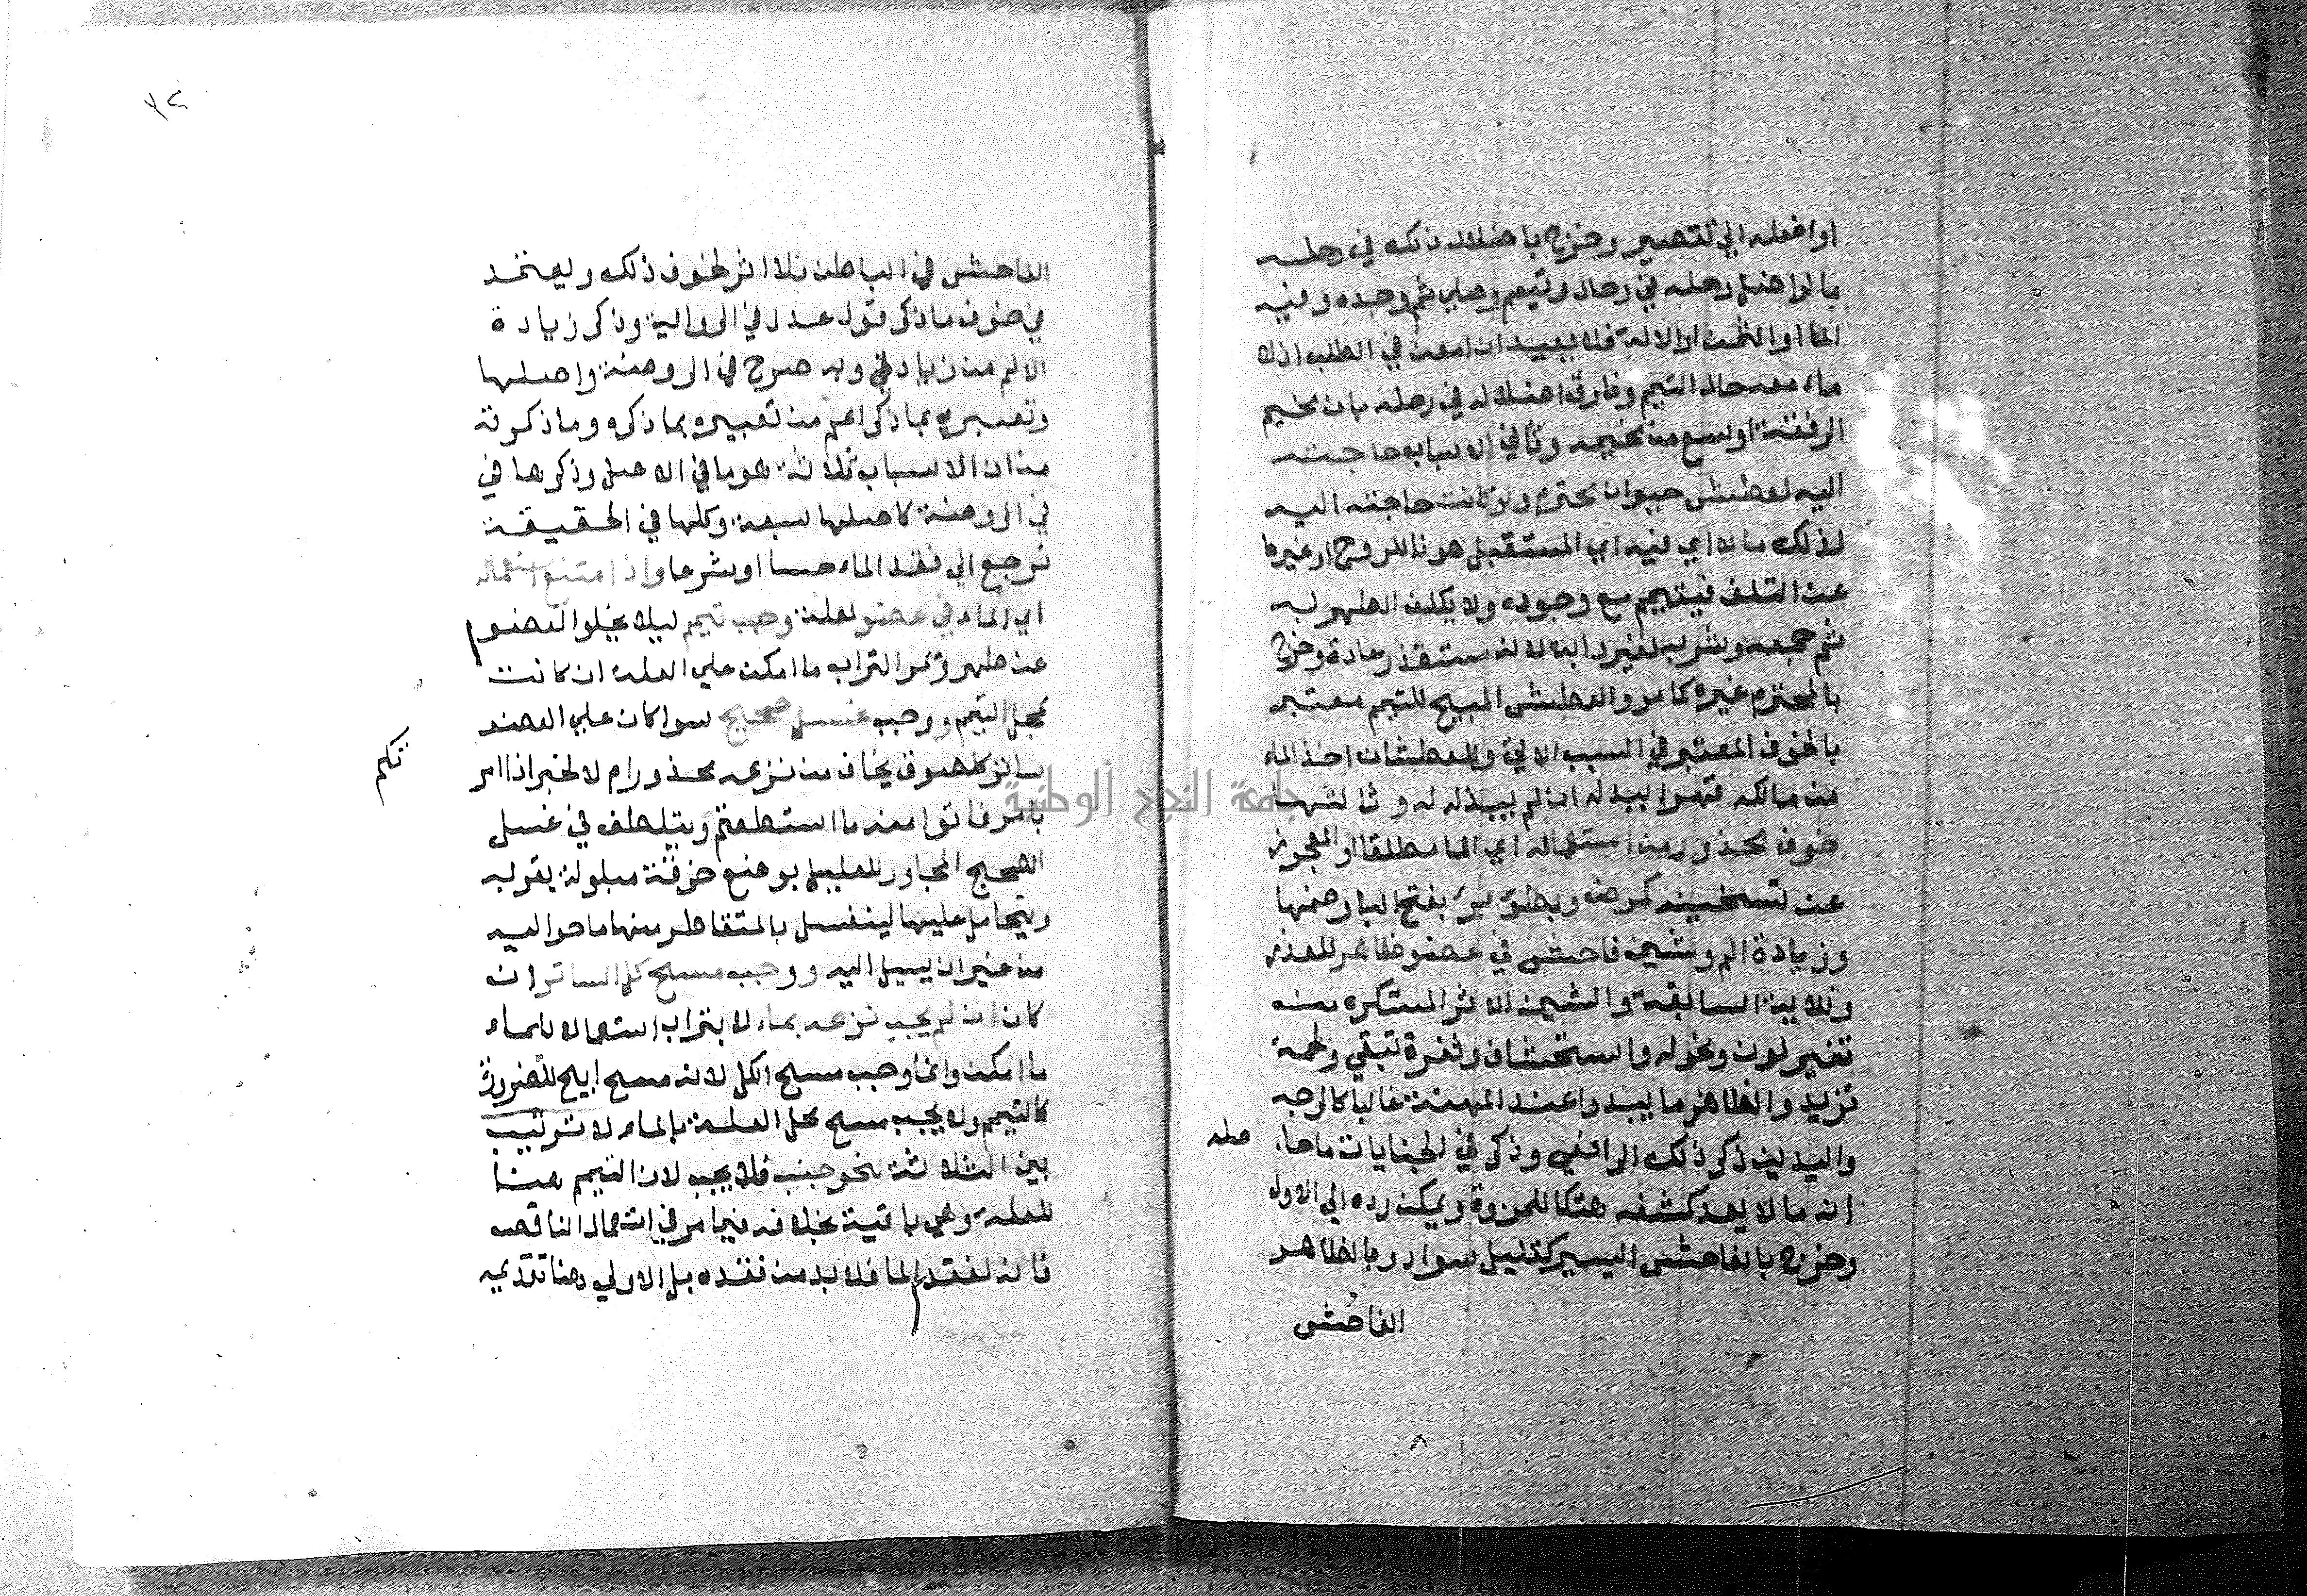 او اضلاله الي تقصير وخرج باضلال ذلك في رحله
ما لو اضل رحله في رحال وتيمم وصلي ثم وجده وفيه
الما او الثمن او الالة فلا يعيد ان امعن في الطلب اذ لا
ماء معه حال التيمم وفارق اضلاله في رحله بان مخيم
الرفقة اوسع من مخيمه وثاني الاسباب حاجته
اليه لعطش حيوان محترم ولو كانت حاجته اليه
لذلك مالا اي فيه اي المستقبل صونا للروح او غيرها
عن التلف فيتيمم مع وجوده ولا يكلف الطهر به
ثم جمعه وشربه لغير دابة لانه مستقذر عادة وخرج
بالمحترم غيره كما مر والعطش المبيح للتيمم معتبر
بالخوف المعتبر في السبب الاتي وللعطشان اخذ الماء
من مالكه قهرا ببدله ان لم يبذله له وثالثها
خوف محذور من استعماله اي الما مطلقا او المعجوز
عن تسخينه كمرض وبطؤ برء بفتح البا وضمها
وزيادة الم وشين فاحش في عضو ظاهر للعذر
وللاية السابقة والشين الاثر المستكره من
تغير لون ونحول واستحشاف وثغرة تبقي ولحمة
تزيد والظاهر ما يبدوا عند المهنة غالبا كالوجه
واليدين ذكر ذلك الرافعي وذكر في الجنايات ما حا
صله
انه ما لا يعد كشفه هتكا للمروة ويمكن رده الي الاول
وخرج بالفاحش اليسير كقليل سواد وبالظاهر
الفاحش
٣٢
الفاحش في الباطن فلا اثر لخوف ذلك ويعتمد
في خوف ما ذكر قول عدل في الرواية وذكر زيادة
الالم من زيادتي وبه صرح في الروضة واصلها
وتعبيري بما ذكر اعم من تعبيره بما ذكره وما ذكرته
من ان الاسباب ثلاثة هو ما في الاصل وذكرها في
في الروضة كاصلها سبعة وكلها في الحقيقة
ترجع الي فقد الماء حسا او شرعا واذا امتنع استعماله
اي الماء في عضو لعلة وجب تيمم ليلا يخلوا العضو
عن طهر ويمر التراب ما امكن علي العلة ان كانت
بمحل التيمم ووجب غسل صحيح سوا كان علي العضو
ساتر كلصوق يخاف من نزعه محذور ام لا لخبر اذا امر
تكم
بامر فاتوا منه ما استطعتم ويتلطف في غسل
الصحيح المجاور للعليل بوضع خرقة مبلولة بقربه
ويتحامل عليها لينغسل بالمتقاطر منها ما حواليه
من غير ان يسيل اليه ووجب مسح كل الساتر ان
كان ان لم يجب نزعه بماء لا بتراب استعمالا للماء
ما امكن وانما وجب مسح الكل لانه مسح ابيح للضرورة
كالتيمم ولا يجب مسح محل العلة بالماء لا ترتيب
بين الثلاثة لنحو جنب فلا يجب لان التيمم هنا
للعلة وهي باقية بخلافه فيما مر في استعمال الناقص
فانه لفقد الما فلا بد من فقده بل الاولي هنا تقديمه
جامعة النجاح الوطنية